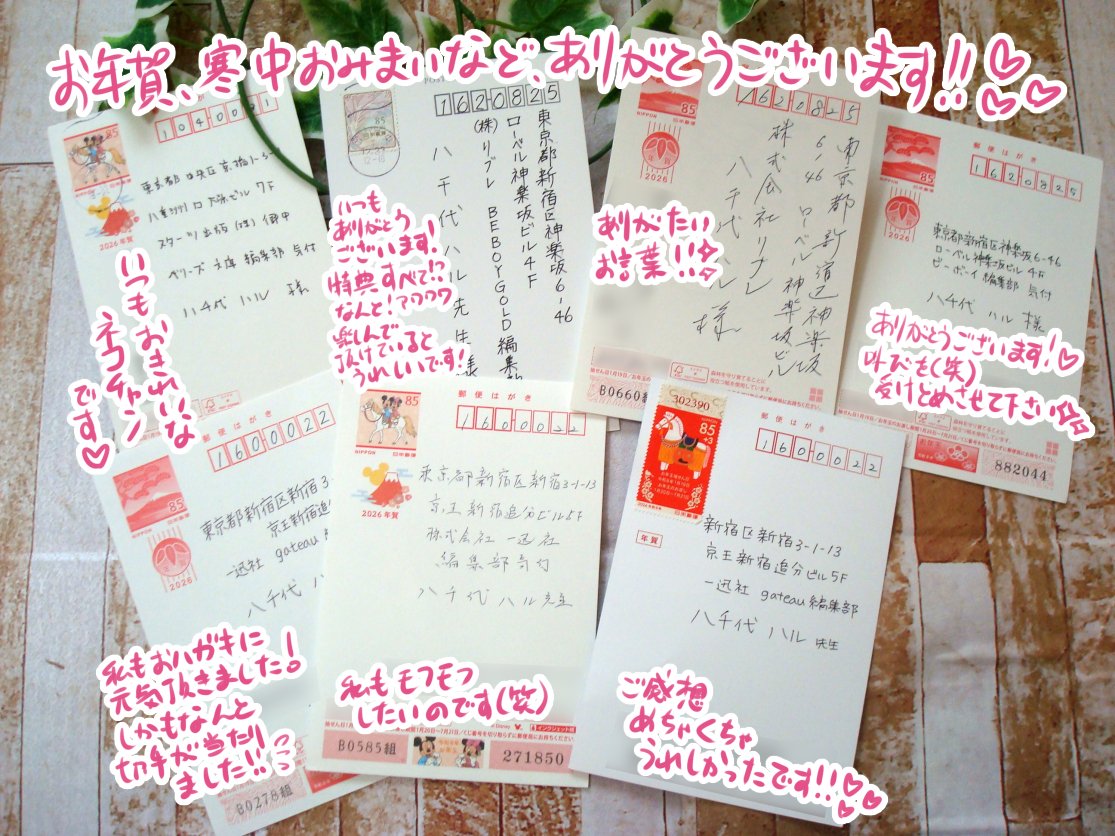 お年賀、寒中おみまいなど、ありがとうございます!!♡♡♡
85
NIPPON
日本郵便
1040031
2026年賀
八千代 ハル 様
いつもおきれいな
ネコチャン
です♡
85
1620825
東京都新宿区神楽坂6-46
ローベル神楽坂ビル4F
(株)リブレ BEBOYGOLD編集
八千代ハル先生様
いつも
ありがとう
ございます!
特典すべて!?
なんと!アワワワ
楽しんで
頂けていると
うれしいです!
85
NIPPON
日本郵便
年賀
2026
1620825
東京都新宿区神楽坂
6-46 ローベル神楽坂ビル
株式会社リブレ
八千代ハル様
ありがたい
お言葉!!
B0660組
85
NIPPON
日本郵便
郵便はがき
年賀
2026
1620825
東京都新宿区神楽坂6-46
ローベル神楽坂ビル 4F
ビーボーイ編集部 気付
八千代 ハル 様
ありがとうございます!♡
叫びを(笑)
受けとめさせて下さい
882044
郵便はがき
85
NIPPON
日本郵便
2026
1600022
東京都新宿区新宿3
京王新宿追
一迅社 gateau
八千代 ハル
私もおハガキに
元気頂きました!
しかもなんと
切手が当たり
ました!!
B0278組
郵便はがき
85
NIPPON
日本郵便
2026年賀
1600022
東京都新宿区新宿3-1-13
京王新宿追分ビル5F
株式会社 一迅社
編集部寄付
八千代 ハル先生
私もモフモフ
したいのです(笑)
Disney
インクジェット紙
B0585組
271850
302390
85
+3
日本郵便
郵便はがき
1600022
年賀
新宿区新宿3-1-13
京王新宿追分ビル5F
一迅社 gateau編集部
八千代 ハル 先生
ご感想
めちゃくちゃ
うれしかったです!!♡♡♡